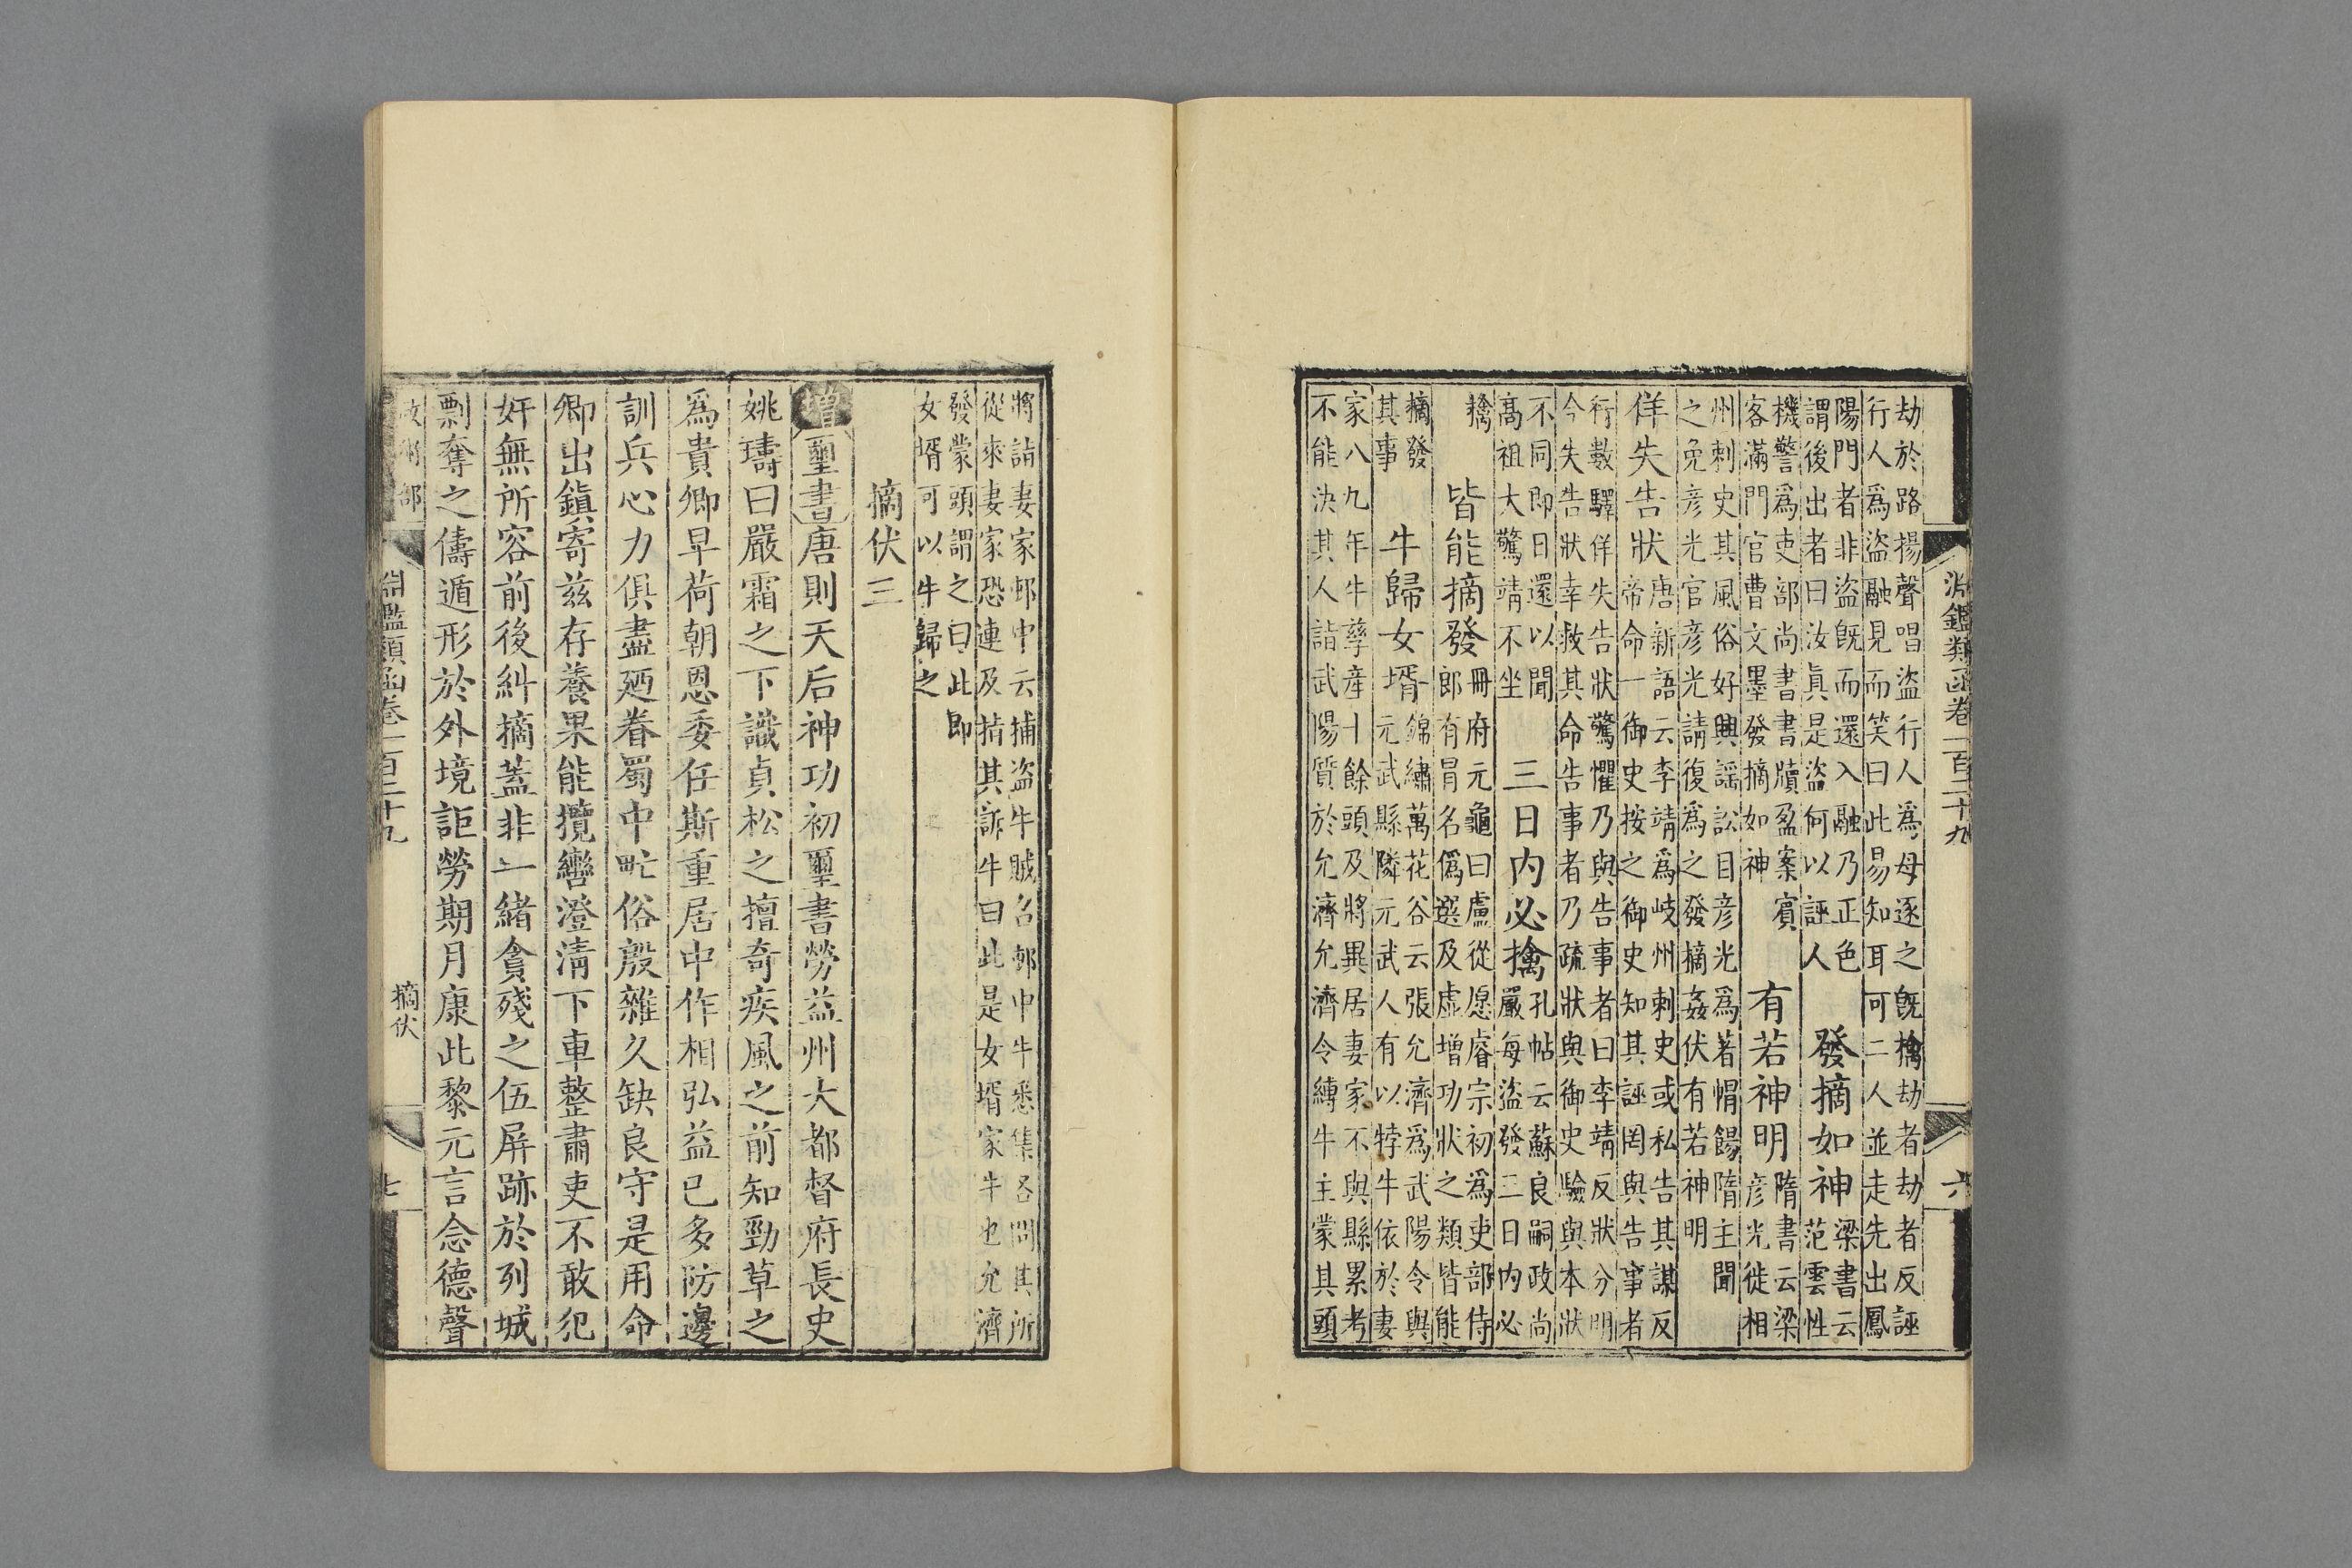 淵鑑類函卷一百二十九
六
劫於路揚聲唱盜行人爲母逐之旣擒劫者劫者反誣
行人爲盜融見而笑曰此易知耳可二人並走先出鳳
陽門者非盜旣而還入融乃正色
謂後出者曰汝眞是盜何以誣人
發摘如神
梁書云
范雲性
機警爲吏部尚書書牘盈案賓
客滿門官曹文墨發摘如神
有若神明
隋書云梁
彦光徙相
州刺史其風俗好興謡訟目彦光爲著帽餳隋主聞
之免彦光官彦光請復爲之發摘姦伏有若神明
佯失告狀
唐新語云李靖爲岐州刺史或私告其謀反
帝命一御史按之御史知其誣罔與告事者
行數驛佯失告狀驚懼乃與告事者曰李靖反狀分明
今失告狀幸救其命告事者乃疏狀與御史驗與本狀
不同即日還以聞
高祖大驚靖不坐
三日内必擒
孔帖云蘇良嗣政尚
嚴每盜發三日内必
擒
皆能摘發
冊府元龜曰盧從愿睿宗初爲吏部侍
郎有冒名僞選及虚增功狀之類皆能
摘發
其事
牛歸女壻
錦繡萬花谷云張允濟爲武陽令與
元武縣隣元武人有以牸牛依於妻
家八九年牛孳產十餘頭及將異居妻家不與縣累考
不能決其人詣武陽質於允濟允濟令縛牛主蒙其頭
將詣妻家邨中云捕盜牛賊召邨中牛悉集各問其所
從來妻家恐連及指其訴牛曰此是女壻家牛也允濟
發蒙頭謂之曰此即
女壻可以牛歸之
摘伏三
增璽書唐則天后神功初璽書勞益州大都督府長史
姚璹曰嚴霜之下識貞松之擅奇疾風之前知勁草之
爲貴卿早荷朝恩委任斯重居中作相弘益已多防邊
訓兵心力俱盡廼眷蜀中甿俗殷雜久缺良守是用命
卿出鎭寄兹存養果能攬轡澄清下車整肅吏不敢犯
奸無所容前後糾摘蓋非一緒貪殘之伍屏跡於列城
剽奪之儔遁形於外境詎勞期月康此黎元言念德聲
政術部
淵鑑類函卷一百二十九
摘伏
七